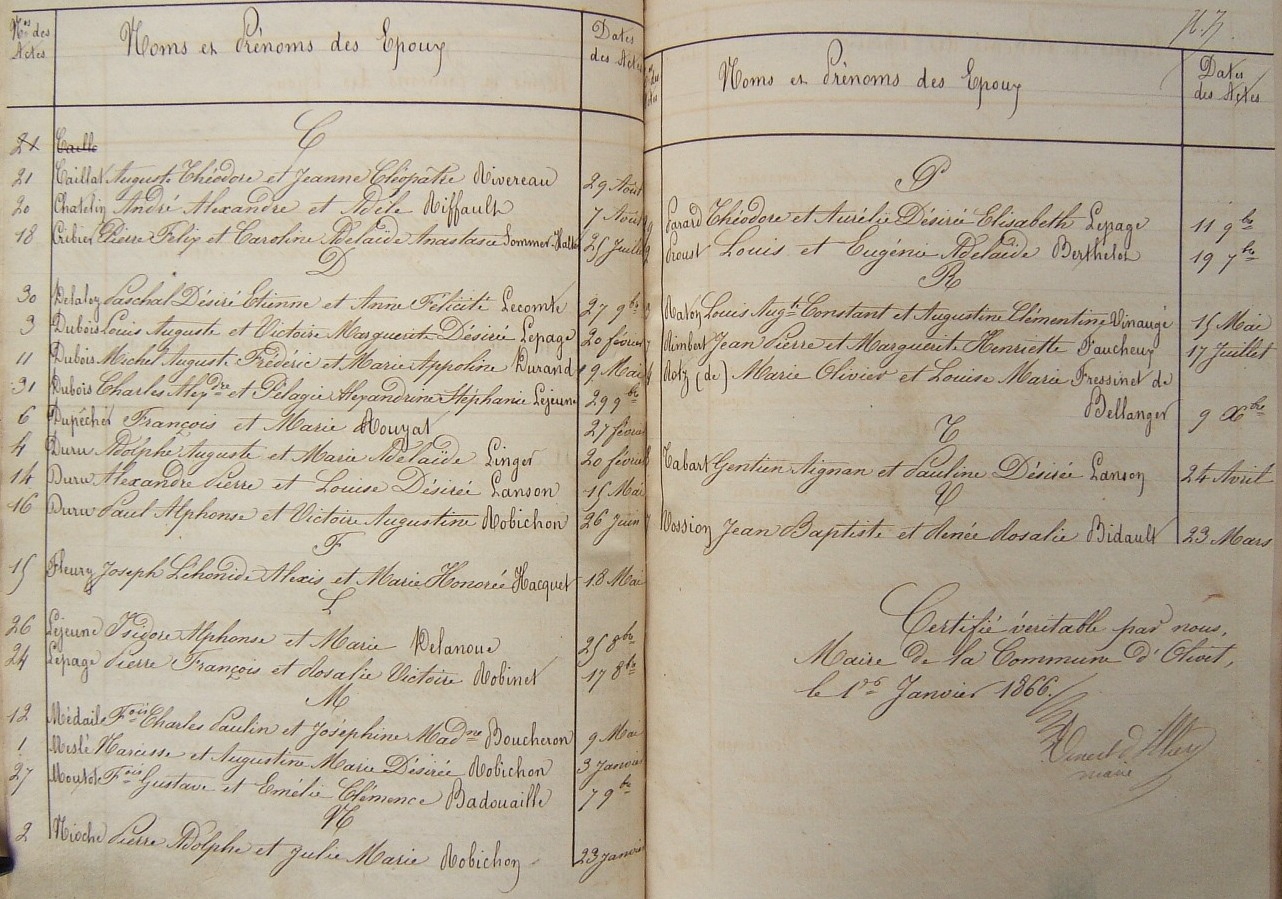 Nos des Actes
Noms et Prénoms des Epoux
Dates des Actes
C
21 Caille
21 Caillat Auguste Théodore et Jeanne Cléopâtre Rivereau 29 Août
20 Chatelin André Alexandre et Adèle Riffault 7 Août
18 Cribier Pierre Félix et Caroline Adelaïde Anastasie Sommer-Halle 25 Juillet
D
30 Delaloy Paschal Désiré Etienne et Anne Félicité Lecomte 27 9bre
3 Dubois Louis Auguste et Victoire Marguerite Désirée Lepage 20 février
11 Dubois Michel Auguste Frédéric et Marie Appoline Durand 9 Mai
31 Dubois Charles Alexdre et Pélagie Alexandrine Stéphanie Lejeune 29 9bre
6 Dupêcher François et Marie Rouyat 27 février
4 Duru Adolphe Auguste et Marie Adelaïde Linger 20 février
14 Duru Alexandre Pierre et Louise Désirée Lanson 15 Mai
16 Duru Paul Alphonse et Victoire Augustine Robichon 26 Juin
F
15 Fleury Joseph Léhonide Alexis et Marie Honorée Hacquet 18 Mai
L
26 Lejeune Isidore Alphonse et Marie Delanoue 25 8bre
24 Lepage Pierre François et Rosalie Victoire Robinet 17 8bre
M
12 Médaile Fois Charles Paulin et Joséphine Madne Boucheron 9 Mai
1 Meslé Narcisse et Augustine Marie Désirée Robichon 3 Janvier
27 Fois Gustave et Emélie Clémence Badouaille 7 9bre
N
2 Nioche Pierre Adolphe et Julie Marie Robichon 23 Janvier
Nos des Actes
Noms et Prénoms des Epoux
Dates des Actes
P
Parard Théodore et Aurélie Désirée Elisabeth Lepage 11 9bre
Proust Louis et Eugénie Adelaïde Berthelot 19 7bre
R
Raton Louis Augte Constant et Augustine Clémentine Vinauge 15 Mai
Rimbert Jean Pierre et Marguerite Henriette Faucheux 17 Juillet
Rotz (de) Marie Olivier et Louise Marie Fressinet de
Bellanger 9 Xbre
T
Tabart Gentien Aignan et Pauline Désirée Lanson 24 Avril
V
Vossion Jean Baptiste et Renée Rosalie Bidault 23 Mars
Certifié véritable par nous,
Maire de la Commune d'Olivet,
le 1er Janvier 1866.
maire